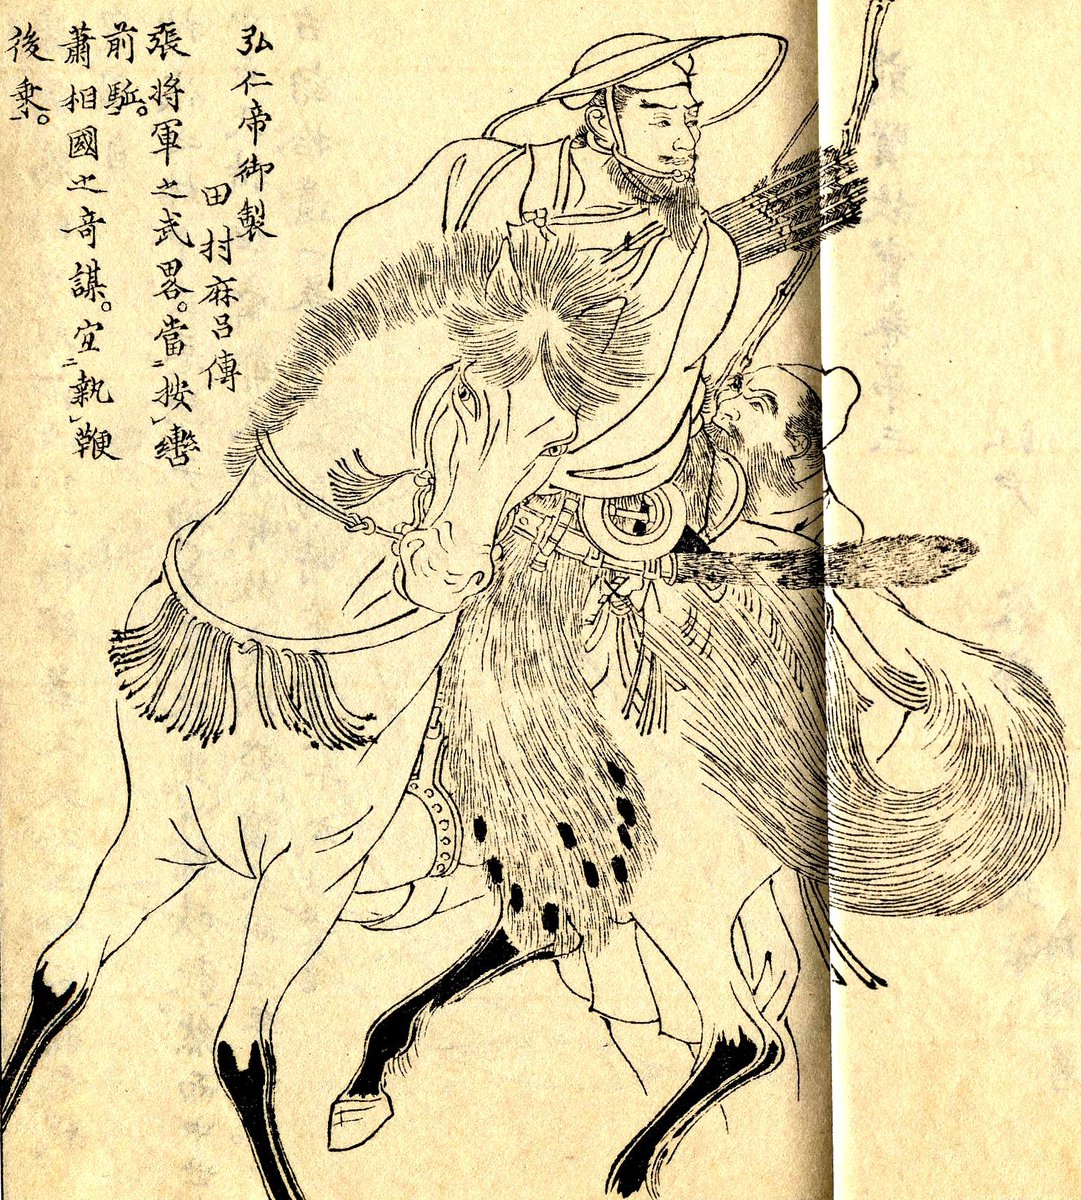 弘仁帝御製
田村麻呂傳
張将軍之武畧。當二按レ轡
前駈一。
蕭相國之竒謀。宜二執レ鞭
後乗一。